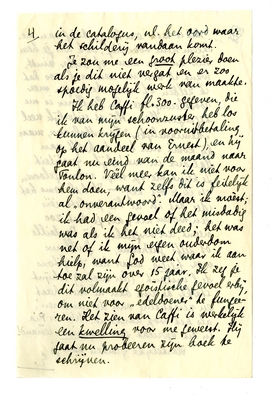 4.
in de catalogus, nl. het oord waar
het schilderij vandaan komt.
Je zou me een groot plezier doen
als je dit niet vergat en er zoo
spoedig mogelijk werk van maakte.
Ik heb Caffi fl. 300.- gegeven, die
ik van mijn schoonzuster heb los
kunnen krijgen (in vooruitbetaling
op het aandeel van Ernest), en hij
gaat nu eind van de maand naar
Toulon. Veel meer kan ik niet voor
hem doen, want zelfs dit is feitelijk
al „onverantwoord". Maar ik moest;
ik had een gevoel of het misdadig
was als ik het niet deed; het was
net of ik mijn eigen ouderdom
hielp, want God weet waar ik aan
toe zal zijn over 15 jaar. Ik zeg je
dit volmaakt egoïstische gevoel erbij,
om niet voor „edelboenes" te fungee-
ren. Het zien van Caffi is werkelijk
een kwelling voor me geweest. Hij
gaat nu probeeren zijn boek te
schrijven.